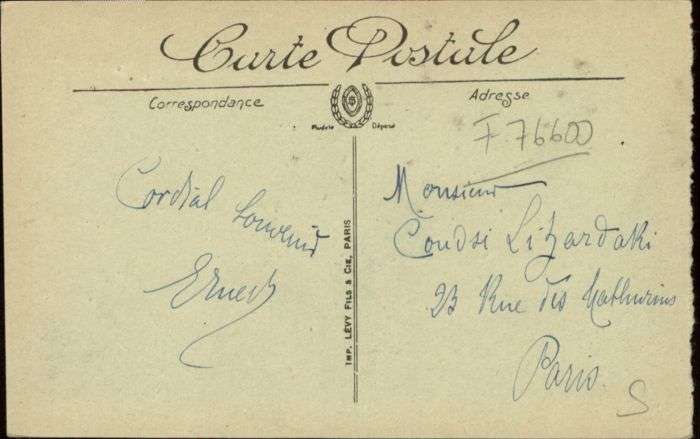 Carte Postale
Correspondance
Adresse
Modèle Déposé
F 76600
Cordial Souvenir
Ernest
IMP. LÉVY FILS & CIE, PARIS
Monsieur
Coudsi Lizardaki
23 Rue des Mathurins
Paris
S